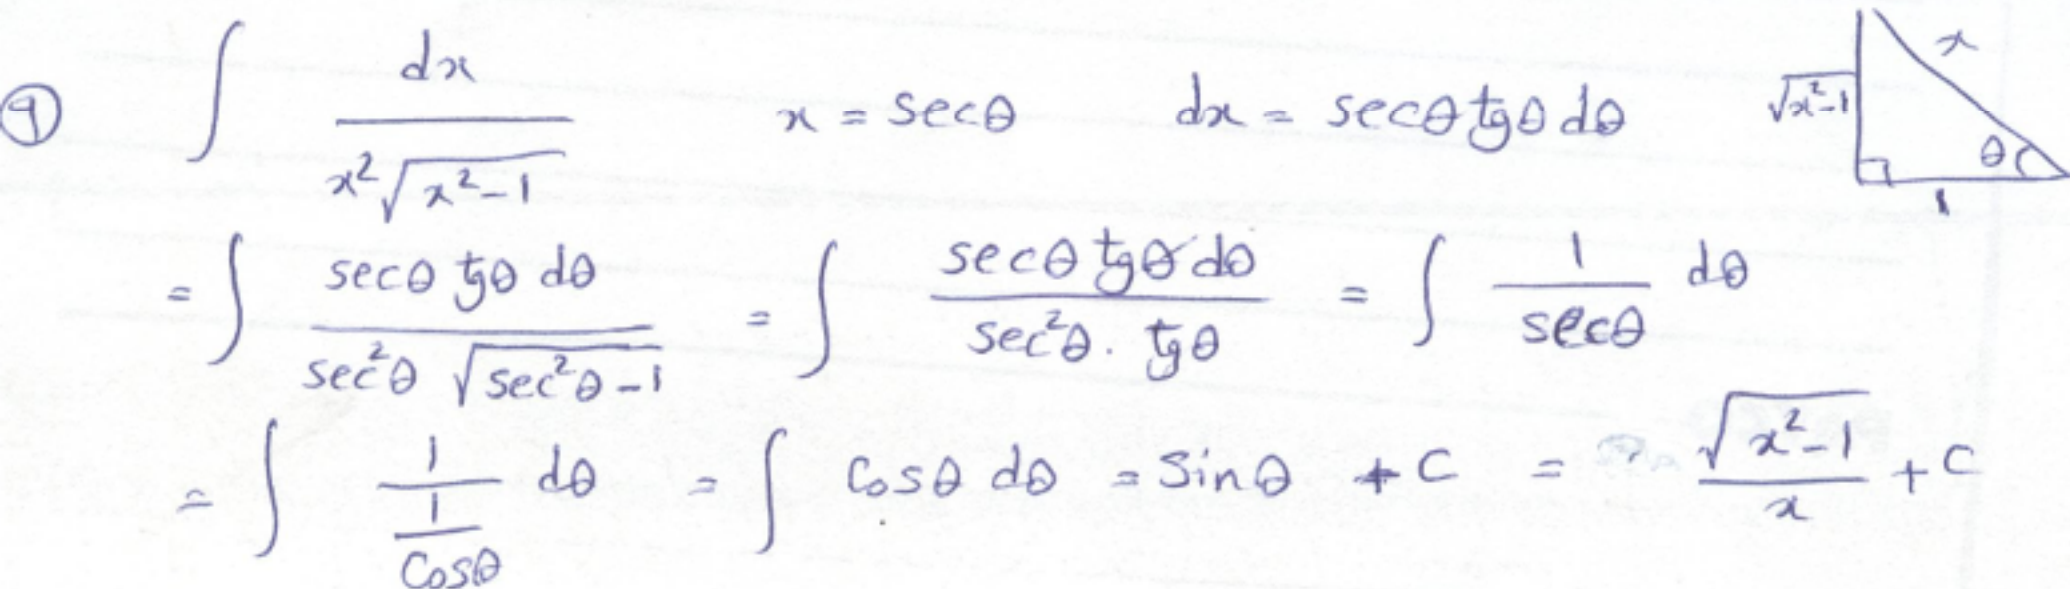 ⑨ ∫ dx / (x²√(x²-1))   x = secθ   dx = secθ tgθ dθ   √(x²-1)   x   θ   1
= ∫ (secθ tgθ dθ) / (sec²θ √(sec²θ-1)) = ∫ (secθ tgθ dθ) / (sec²θ . tgθ) = ∫ 1/secθ dθ
= ∫ 1/(1/Cosθ) dθ = ∫ Cosθ dθ = Sinθ + C = √(x²-1)/x + C